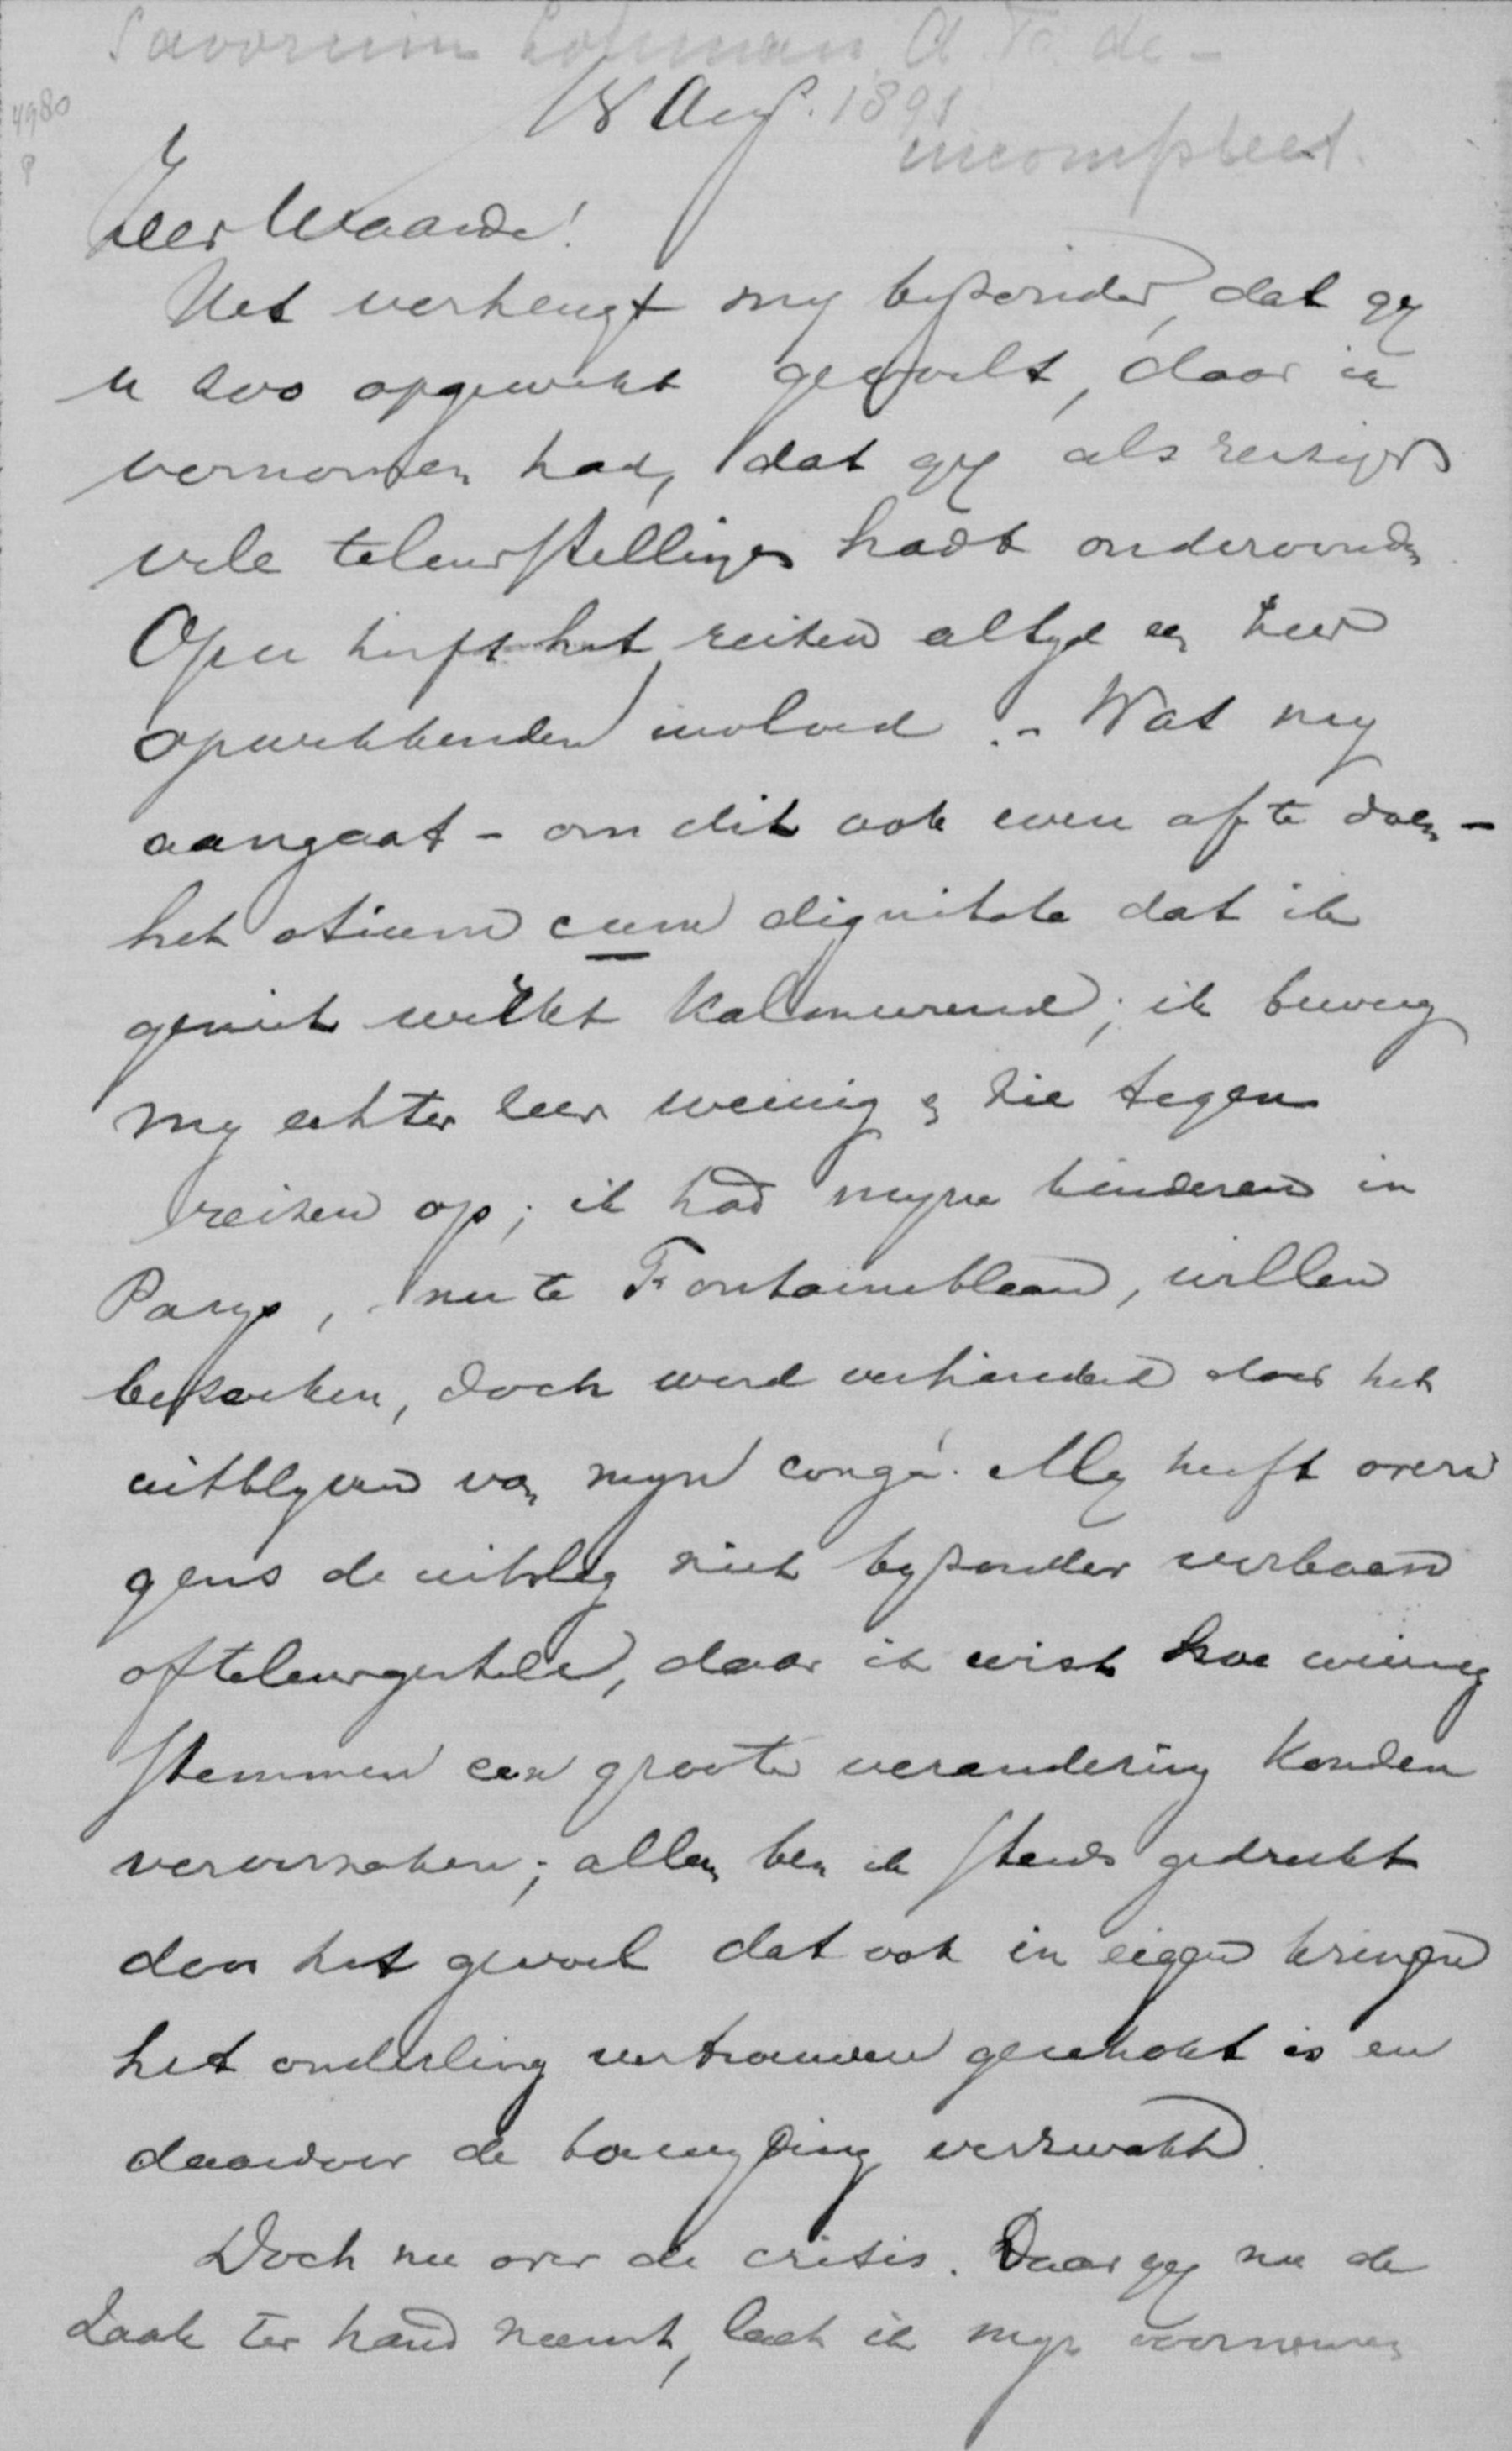 Savornin Lohman A. F. de -
18 Aug. 1891
4980
incompleet.
Zeer Waarde!
Het verheugt my byzonder, dat gy
u zoo opgewekt gevoelt, daar ik
vernomen had, dat gy als reiziger
vele teleurstellingen hadt ondervonden
Op u heeft het reizen altyd een zeer
opwekkenden invloed. - Wat my
aangaat - om dit ook even af te doen -
het otium cum dignitate dat ik
geniet werkt kalmeerend; ik beweeg
my echter zeer weinig & zie tegen
reizen op; ik had myne kinderen in
Parys, nu te Fontainebleau, willen
bezoeken, doch werd verhinderd door het
uitblyven van myn congé. My heeft overi
gens de uitslag niet byzonder verbaasd
of teleurgesteld, daar ik wist hoe weinig
stemmen een groote verandering konden
veroorzaken; alleen ben ik steeds gedrukt
door het gevoel dat ook in eigen kringen
het onderling vertrouwen geschokt is en
daardoor de toewyding verzwakt.
Doch nu over de crisis. Daar gy nu de
zaak ter hand neemt, laat ik myn voornemen